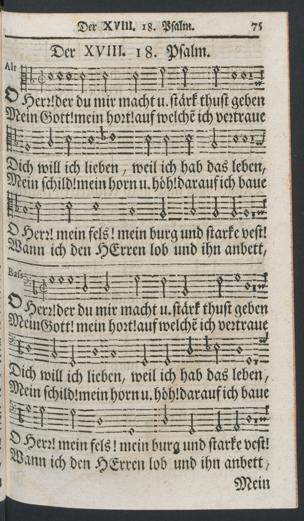 Der XVIII. 18. Psalm. 75
Der XVIII. 18. Psalm.
Alt
O Herr! der du mir macht u. stärk thust geben
Mein Gott! mein hort! auf welchē ich vertraue
Dich will ich lieben, weil ich hab das leben,
Mein schild! mein horn u. höh! darauf ich baue
O Herr! mein fels! mein burg und starke vest!
Wann ich den HErren lob und ihn anbett,
Bass
O Herr! der du mir macht u. stärk thust geben
Mein Gott! mein hort! auf welchē ich vertraue
Dich will ich lieben, weil ich hab das leben,
Mein schild! mein horn u. höh! darauf ich baue
O Herr! mein fels! mein burg und starke vest!
Wann ich den HErren lob und ihn anbett,
Mein